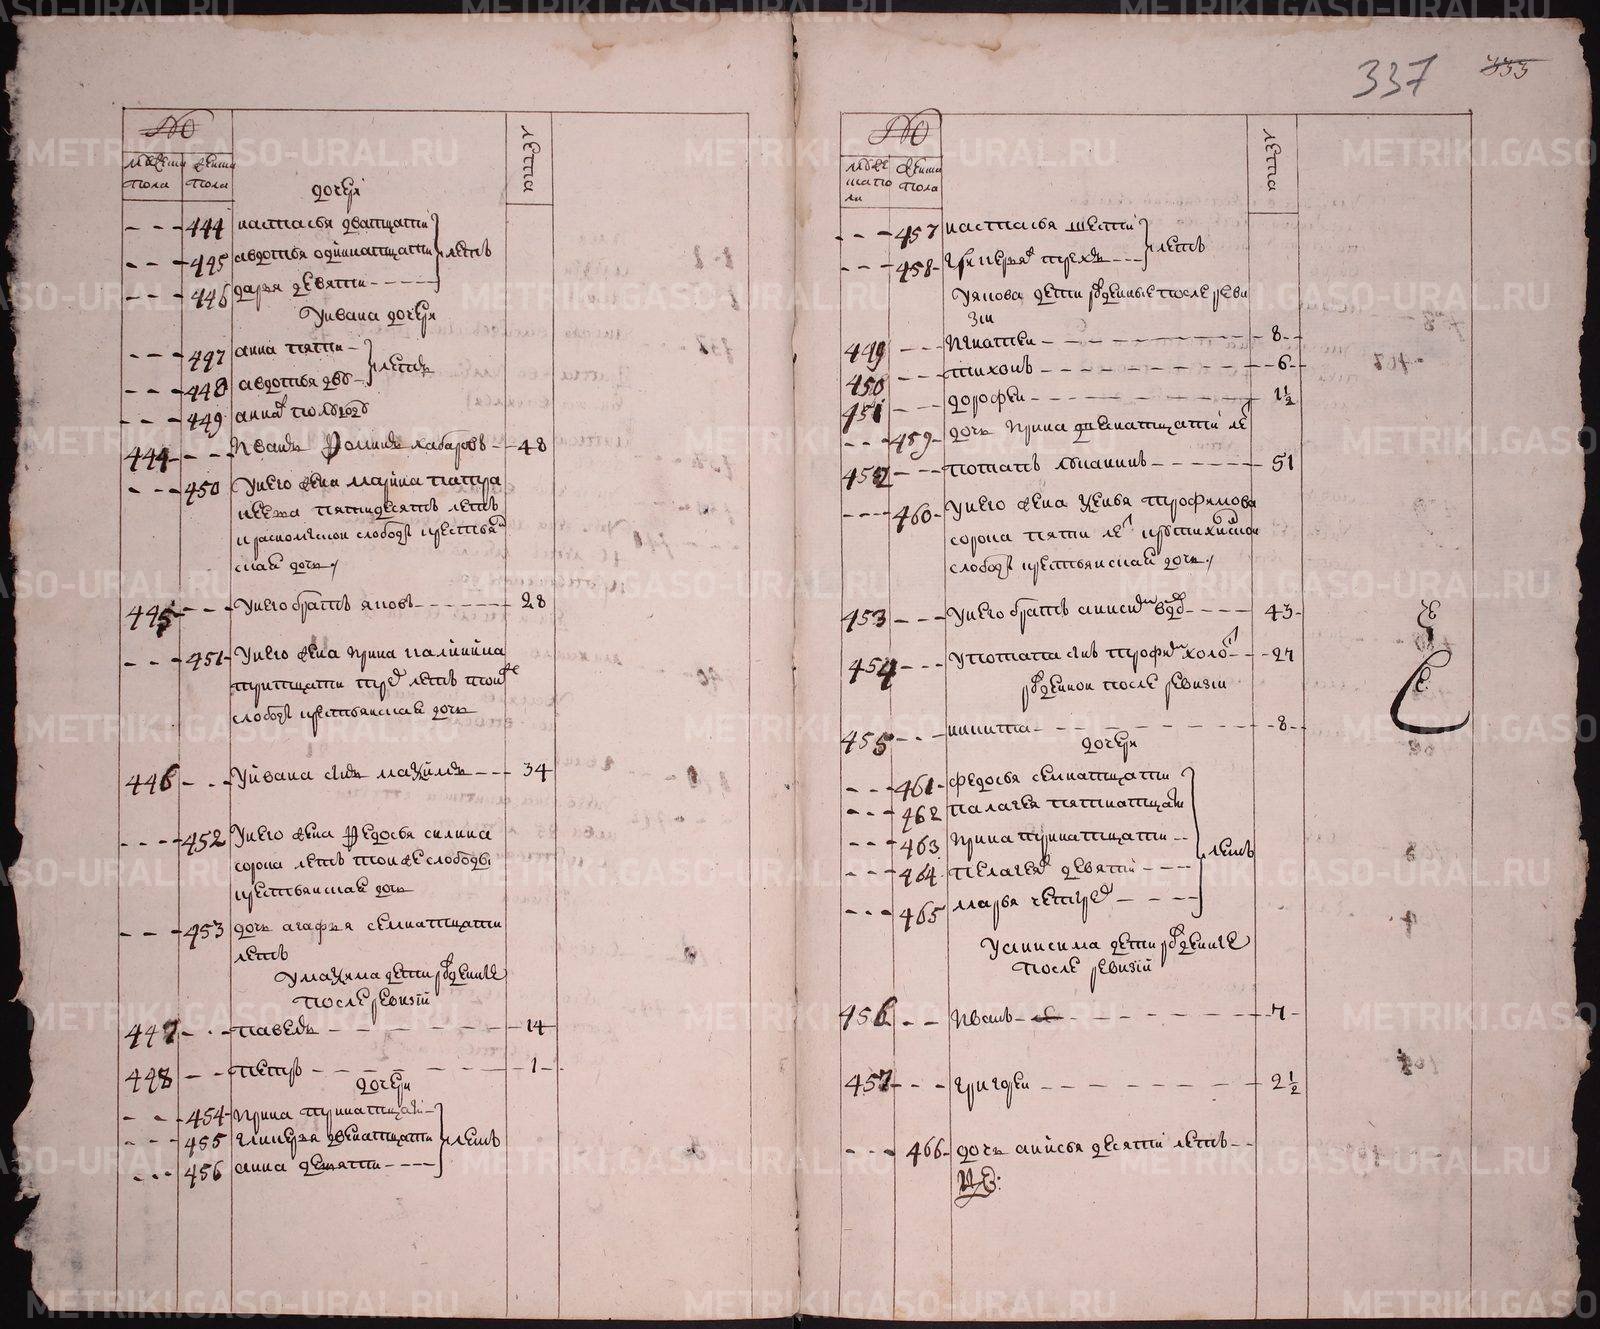 337
333
№
мужеска пола
женска пола
лета
дочеря
444 настасья дватцати
445 авдотья одиннатцати летъ
446 дарья девяти
У ивана дочеря
447 анна пяти
448 авдотья дву летъ
449 анна полугоду
444 Иванъ Фоминъ хабаровъ 48
450 У него жена марина
пятидесятъ летъ
слободы крестьян
ская дочь
445 У него братъ яковъ 28
451 У него жена ирина
тритцати трех летъ тойже
слободы крестьянская дочь
446 У ивана сынъ максимъ 34
452 У него жена Федосья силина
сорока летъ тойже слободы
крестьянская дочь
453 дочь агафья семнатцати
летъ
У максима дети рожденные
после ревизии
447 павелъ 14
448 петръ 1
дочери
454 Ирина тринатцати
455 гликерья двенатцати летъ
456 анна девяти
№
мужеска пола
женска пола
лета
457 настасья шести
458 трехъ летъ
У якова дети рожденные после реви
зии
449 Игнатеи 8
450 тихонъ 6
451 дорофеи 1½
459 дочь Ирина двенатцати ле
452 потапъ 51
460 У него жена трофимова
сорока пяти ле
слободы крестьянская дочь
453 У него братъ анисимъ 43
454 У потапа сынъ трофимъ холо 27
рожденной после ревизии
455 никита 8
дочеря
461 федосья семнатцати
462 палагея пятнатцати
463 Ирина тринатцати летъ
464 пелагея девяти
465 марья четырех
У анисима дети рожденные
после ревизии
456 Иванъ 7
457 григореи 2½
466 дочь анисья десяти летъ